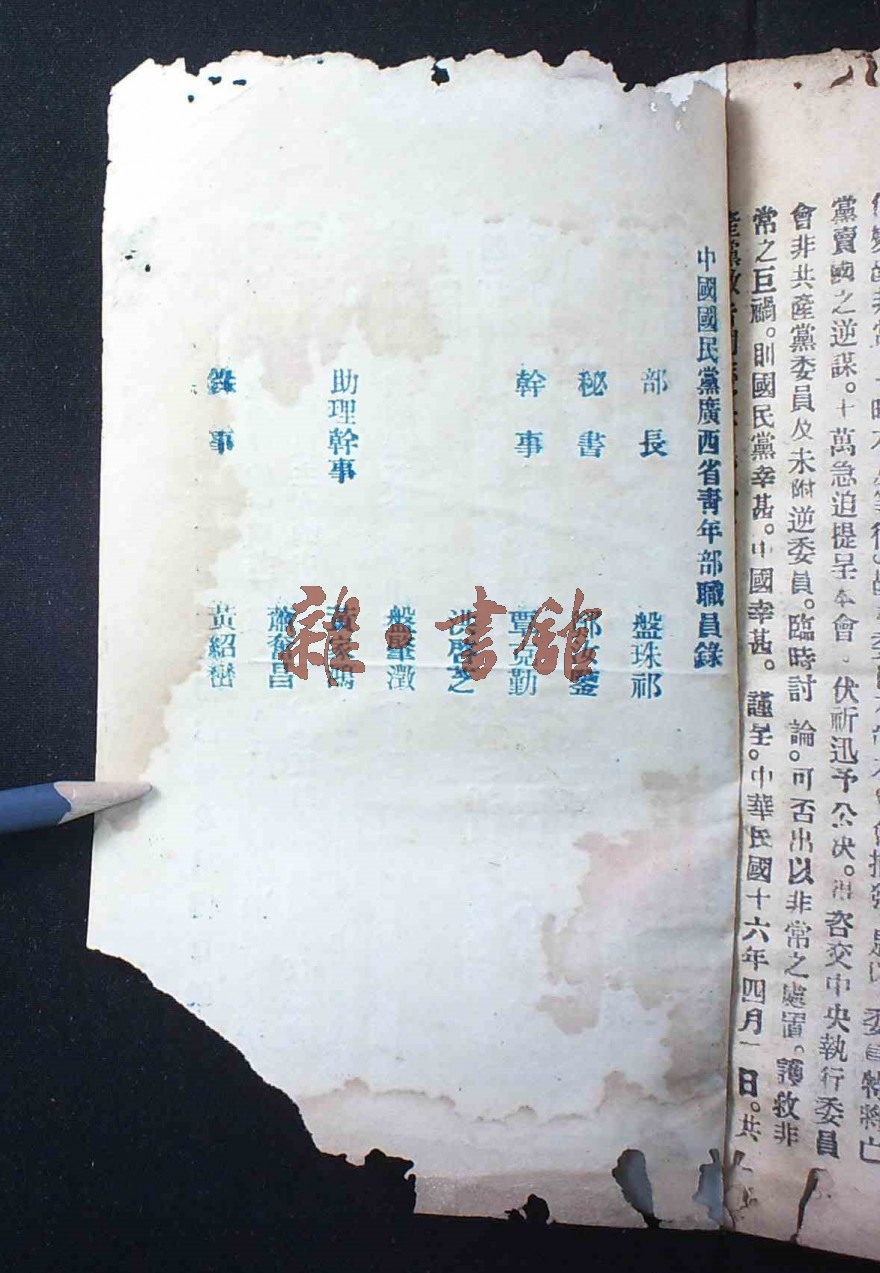 黨賣國之逆謀。十萬急迫提呈本會、伏祈迅予公决。咨交中央執行委員
會非共產黨委員及未附逆委員。臨時討論。可否出以非常之處置。護救非
常之巨禍。則國民黨幸甚。中國幸甚。謹呈。中華民國十六年四月一日。共
中國國民黨廣西省靑年部職員錄
部長 盤珠祁
秘書
幹事 覃克勤
洪啓芝
盤肇澂
助理幹事 黃家
蕭奮昌
錄事 黃紹巒
雜·書館